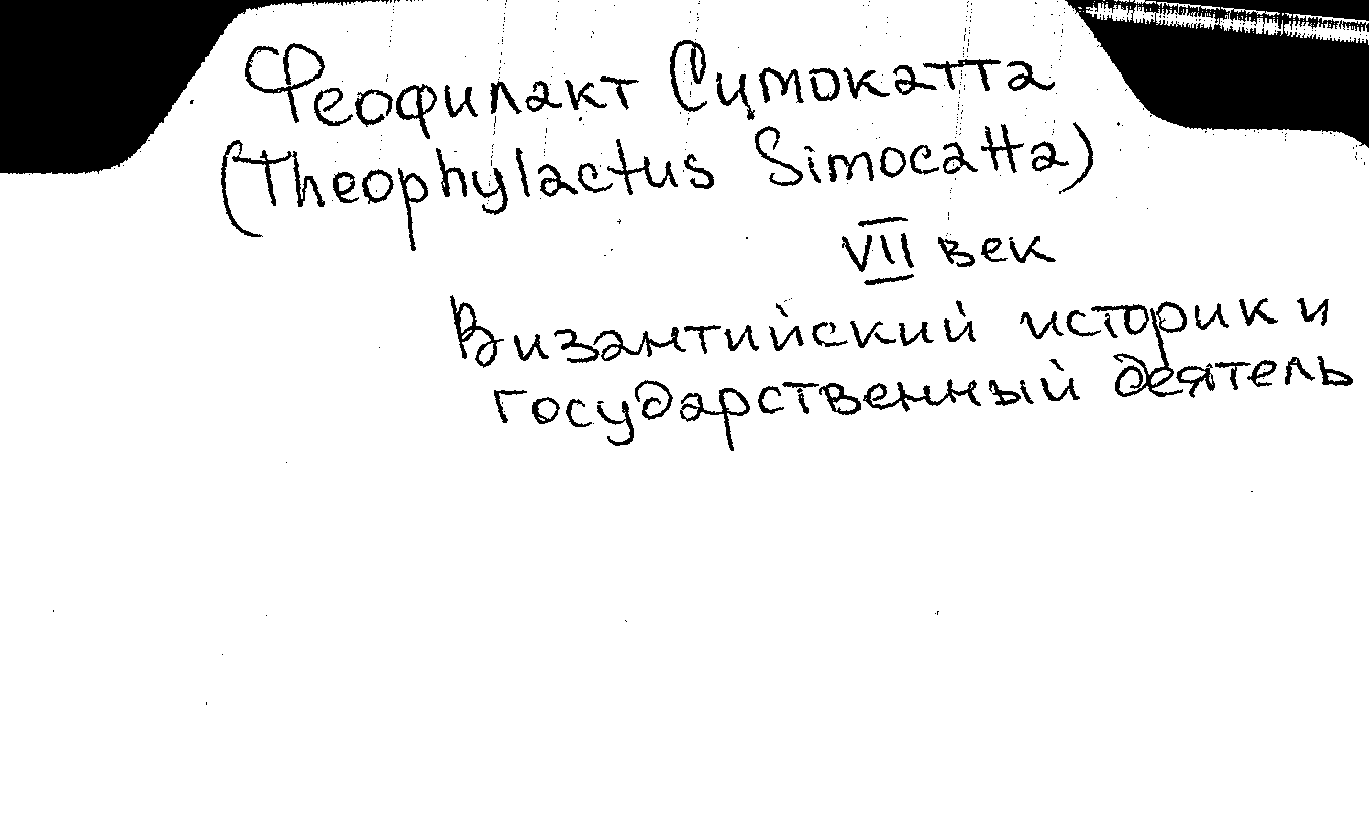 Феофилакт Симокатта
(Theophylactus Simocatta)
VII век
Византийский историк и
государственный деятель